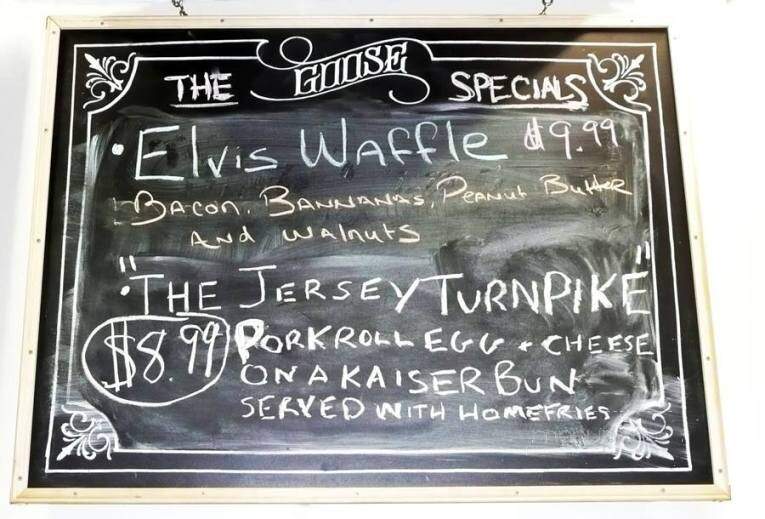 THE GOOSE SPECIALS
• Elvis Waffle $9.99
Bacon, Bannanas, Peanut Butter
And Walnuts
• "THE JERSEY TURNPIKE"
$8.99 PORKROLL EGG + CHEESE
ON A KAISER BUN
SERVED WITH HOMEFRIES